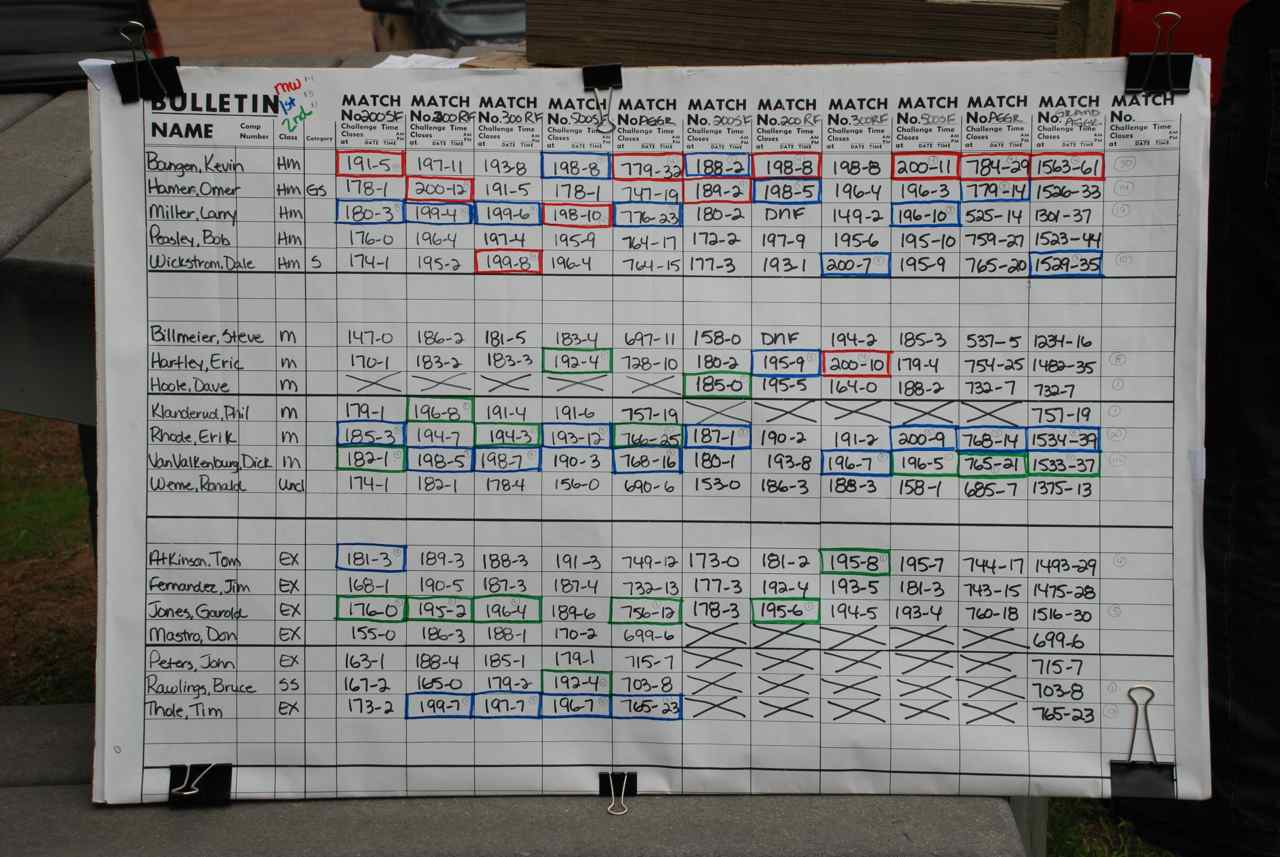 BULLETIN MW 1st 2nd MATCH MATCH MATCH MATCH MATCH MATCH MATCH MATCH MATCH MATCH MATCH MATCH
NAME Comp Number Class Category No. 200SF No. 200RF No. 300RF No. 500SF No. AGGR No. 200SF No. 200RF No. 300RF No. 500SF No. AGGR No. GRAND AGGR No.
Challenge Time Closes AM PM at DATE TIME
Bangen, Kevin Hm 191-5 197-11 193-8 198-8 779-32 188-2 198-8 198-8 200-11 784-29 1563-61
Hamer, Omer Hm GS 178-1 200-12 191-5 178-1 747-19 189-2 198-5 196-4 196-3 779-14 1526-33
Miller, Larry Hm 180-3 199-4 199-6 198-10 776-23 180-2 DNF 149-2 196-10 525-14 1301-37
Peasley, Bob Hm 176-0 196-4 197-4 195-9 764-17 172-2 197-9 195-6 195-10 759-27 1523-44
Wickstrom, Dale Hm S 174-1 195-2 199-8 196-4 764-15 177-3 193-1 200-7 195-9 765-20 1529-35
Billmeier, Steve m 147-0 186-2 181-5 183-4 697-11 158-0 DNF 194-2 185-3 537-5 1234-16
Hartley, Eric m 170-1 183-2 183-3 192-4 728-10 180-2 195-9 200-10 179-4 754-25 1482-35
Hoole, Dave m 185-0 195-5 164-0 188-2 732-7 732-7
Klanderud, Phil m 179-1 196-8 191-4 191-6 757-19 757-19
Rhode, Erik m 185-3 194-7 194-3 193-12 766-25 187-1 190-2 191-2 200-9 768-14 1534-39
VanValkenburg, Dick m 182-1 198-5 198-7 190-3 768-16 180-1 193-8 196-7 196-5 765-21 1533-37
Weme, Ronald Uncl 174-1 182-1 178-4 156-0 690-6 153-0 186-3 188-3 158-1 685-7 1375-13
Atkinson, Tom EX 181-3 189-3 188-3 191-3 749-12 173-0 181-2 195-8 195-7 744-17 1493-29
Fernandez, Jim EX 168-1 190-5 187-3 187-4 732-13 177-3 192-4 193-5 181-3 743-15 1475-28
Jones, Garold EX 176-0 195-2 196-4 189-6 756-12 178-3 195-6 194-5 193-4 760-18 1516-30
Mastro, Don EX 155-0 186-3 188-1 170-2 699-6 699-6
Peters, John EX 163-1 188-4 185-1 179-1 715-7 715-7
Rawlings, Bruce SS 167-2 165-0 179-2 192-4 703-8 703-8
Thole, Tim EX 173-2 199-7 197-7 196-7 765-23 765-23